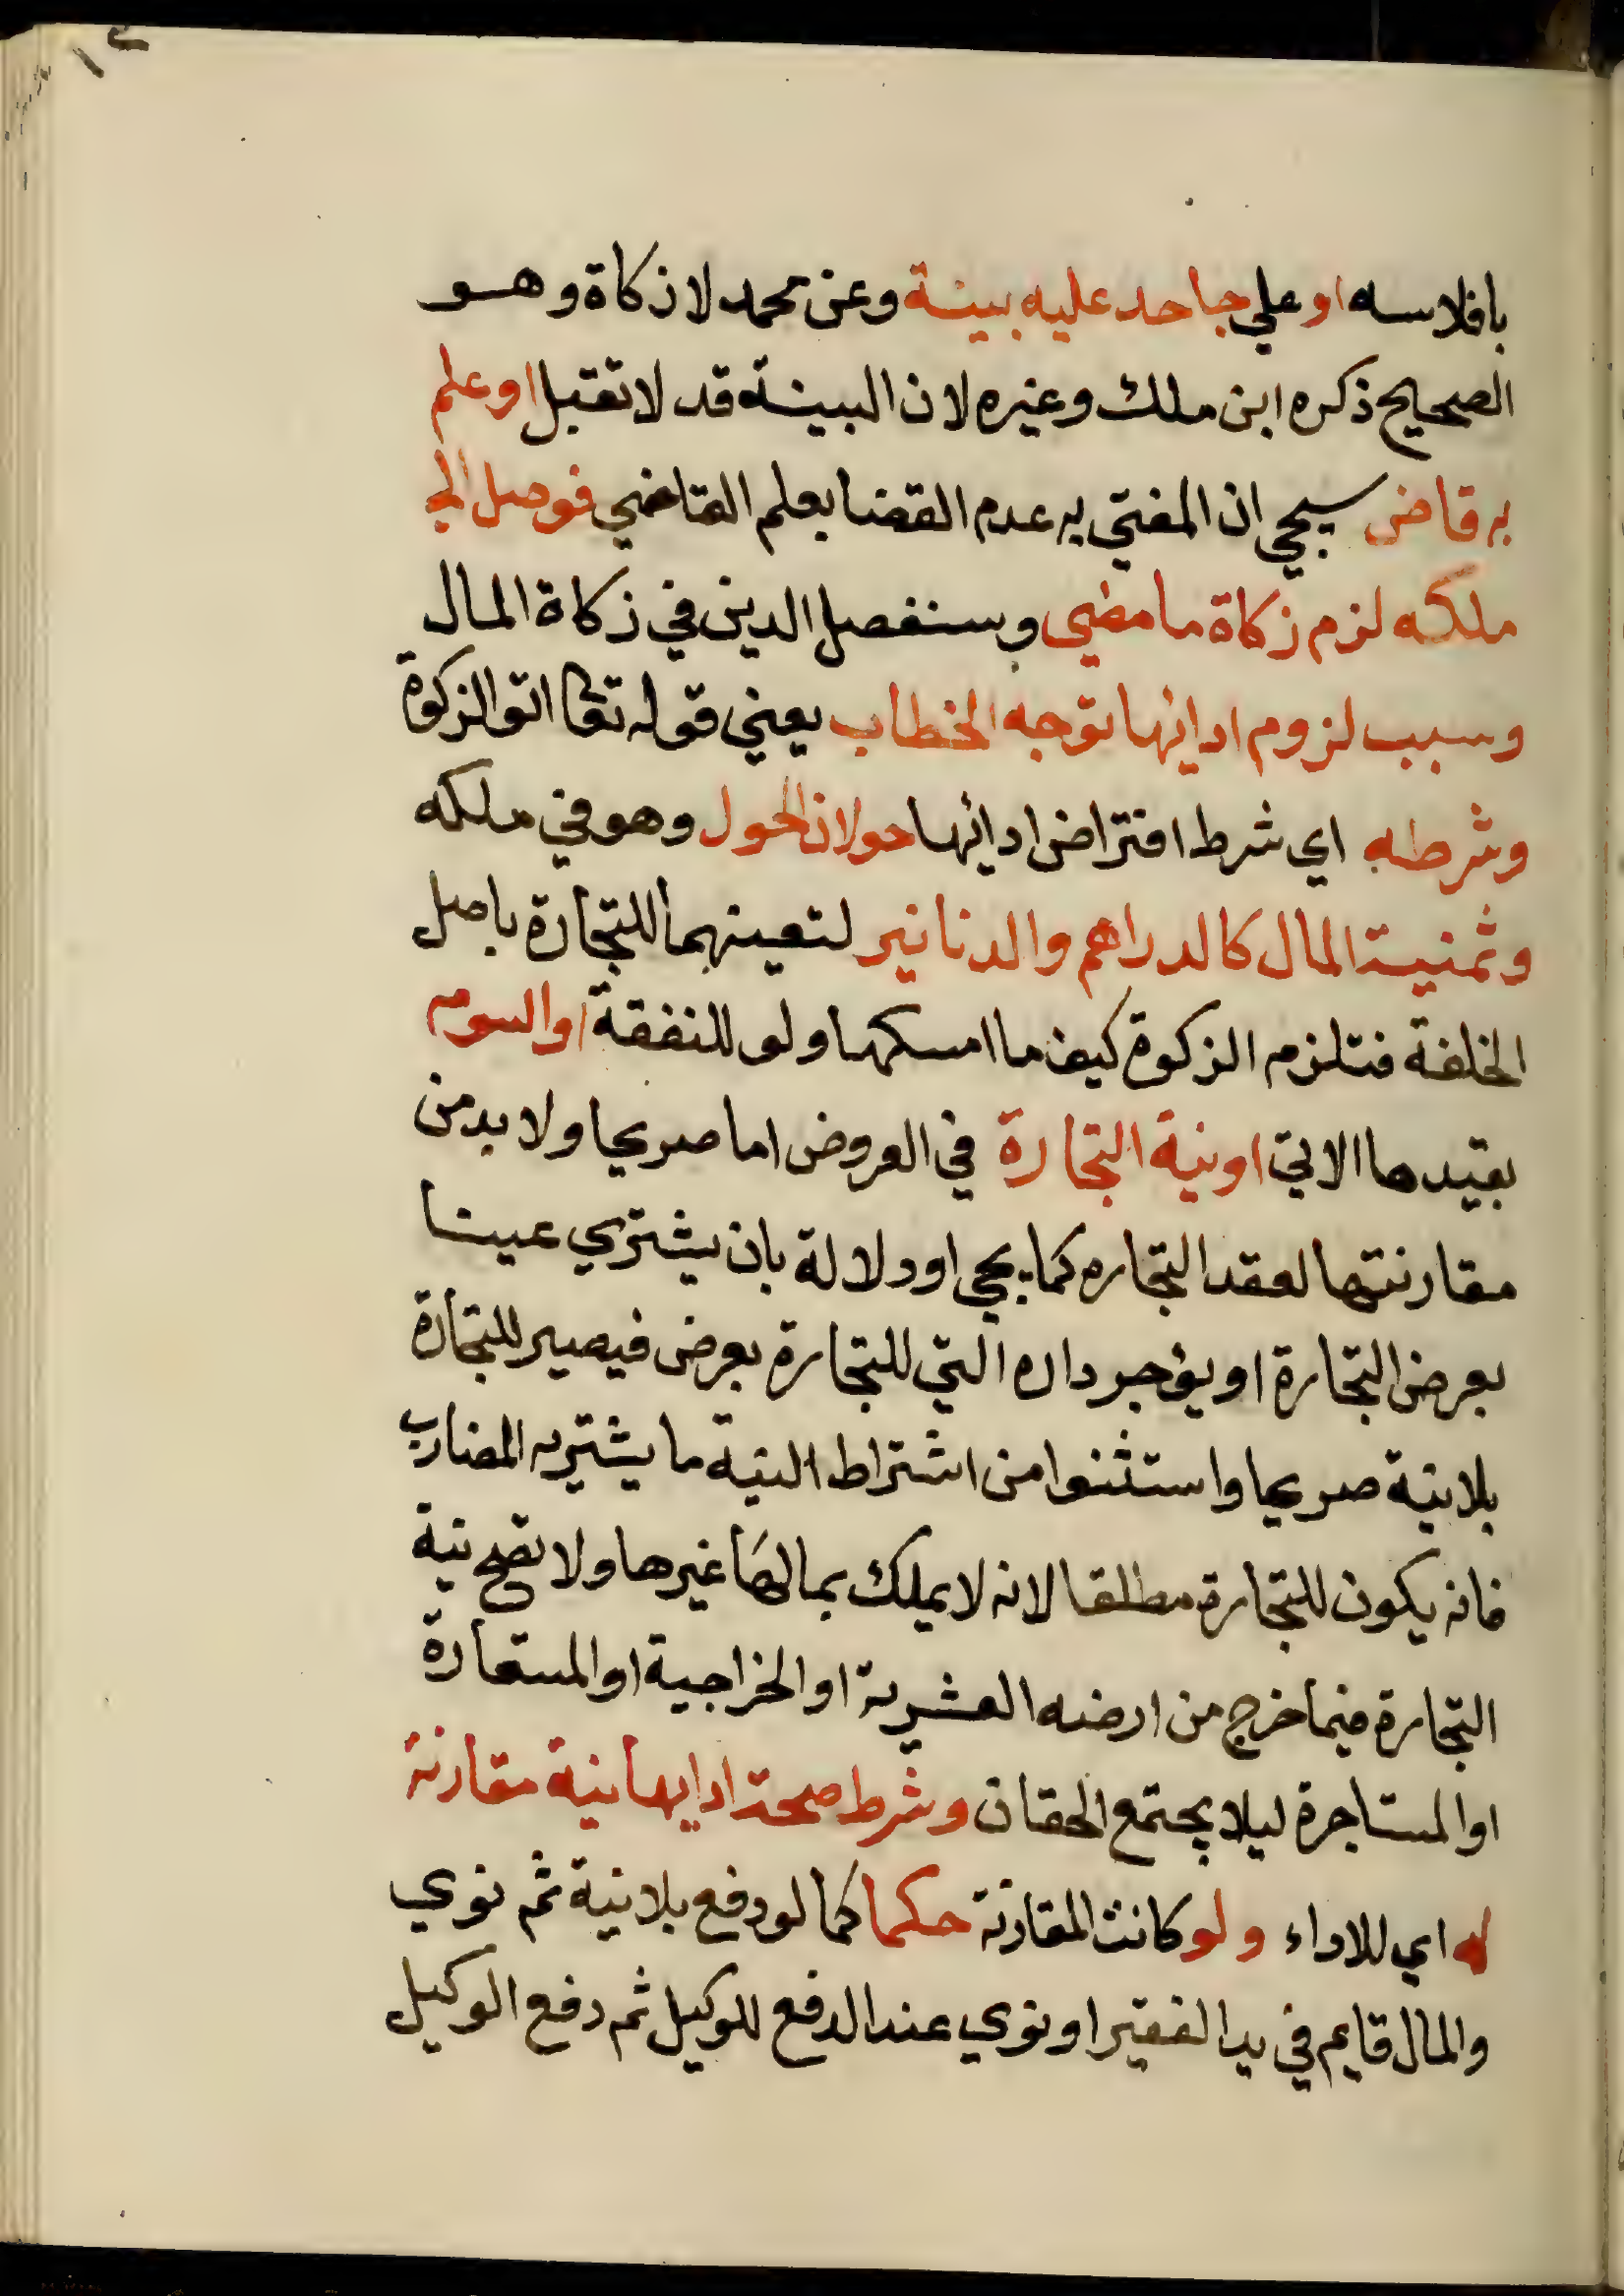 بافلاسه او علي جاحد عليه بينة وعن محمد لا زكاة وهو
الصحيح ذكره ابن ملك وغيره لان البينة قد لا تقبل او علم
به قاض سيجي ان المفتي به عدم القضا بعلم القاضي فوصل الي
ملكه لزم زكاة ما مضي وسنفصل الدين في زكاة المال
وسبب لزوم ادائها توجه الخطاب يعني قوله تعا اتو الزكوة
وشرطه اي شرط افتراض ادائها حولان الحول وهو في ملكه
وثمنية المال كالدراهم والدنانير لتعينهما للتجارة باصل
الخلفة فتلزم الزكوة كيف ما امسكهما ولو للنفقة او السوم
بقيدها الاتي او نية التجارة في العروض اما صريحا ولا بد من
مقارنتها لعقد التجاره كما يجي او دلالة بان يشتري عينا
بعرض التجارة او يؤجر داره التي للتجارة بعرض فيصير للتجارة
بلا نية صريحا واستثنوا من اشتراط النية ما يشتريه المضارب
فانه يكون للتجارة مطلقا لانه لا يملك بمالها غيرها ولا تصح نية
التجارة فيما خرج من ارضه العشرية او الخراجية او المستعارة
او المستاجرة ليلا يجتمع الحقان وشرط صحة ادايها نية مقارنة
له اي للاداء ولو كانت المقارنة حكما كما لو دفع بلا نية ثم نوي
والمال قايم في يد الفقير او نوي عند الدفع للوكيل ثم دفع الوكيل